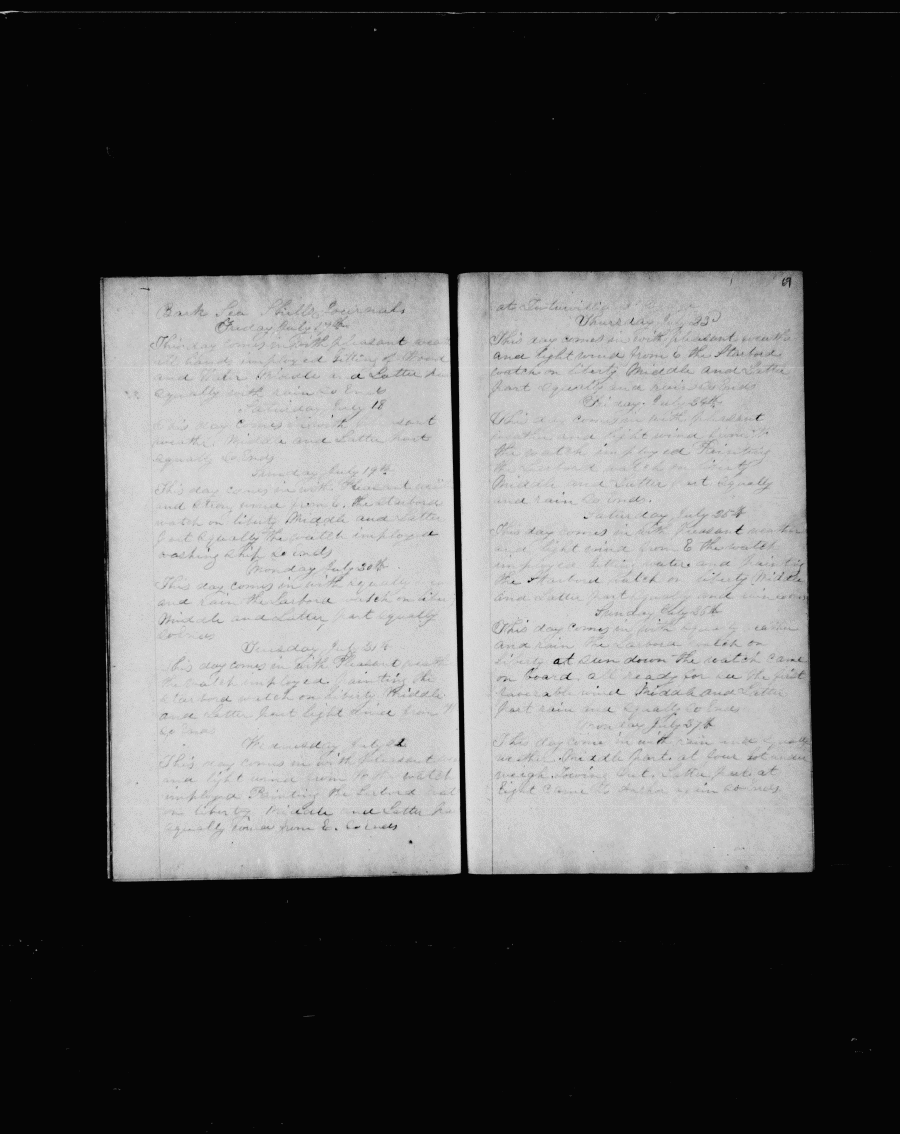 Bark Sea Journals
Friday July 17th
This day comes in with pleasant
all hands employed of Wood
and Water Middle and Latter
Equally with rain So Ends
Saturday July 18
This day comes in with
Middle and Latter part
Equally So Ends
Sunday July 19th
This day comes in with Pleasant
and Strong wind from E. the starbord
watch on liberty Middle and Latter
Part Equally the watch imployed
washing Ship So Ends
Monday July 20th
This day comes in with Equally
and Rain the Larbord watch on
Middle and Latter part Equally
So Ends
Tuesday July 21st
This day comes in With Pleasant
the watch imployed painting the
Starbord watch on liberty Middle
and Latter part light Wind from
So Ends
Wednesday July 22
This day comes in with Pleasant
and light wind from the watch
imployed Painting the Larbord
on liberty Middle and Latter
Equally from E. So Ends
69
at
Thursday July 23d
This day comes in with pleasant
and light wind from E the Starbord
watch on liberty Middle and Latter
part Equally and rain So Ends
Friday July 24th
This day comes in with pleasant
weather and light wind from
the watch imployed Painting
the Larbord watch on liberty
Middle and Latter part Equally
and rain So Ends.
Saturday July 25th
This day comes in with pleasant weather
and light wind from E the watch
imployed water and painting
the Starbord watch on liberty Middle
and Latter part Equally and rain
Sunday July 26th
This day comes in with Equally weather
and rain the Larbord watch on
liberty at Sun down the watch came
on board all ready for sea the first
favorable wind Middle and Latter
Part rain and Equally So Ends
Monday July 27th
This day come in with rain and Equally
weather Middle Part at four got under
weigh Towing Out. Latter part at
Eight Came to Anchor again So Ends